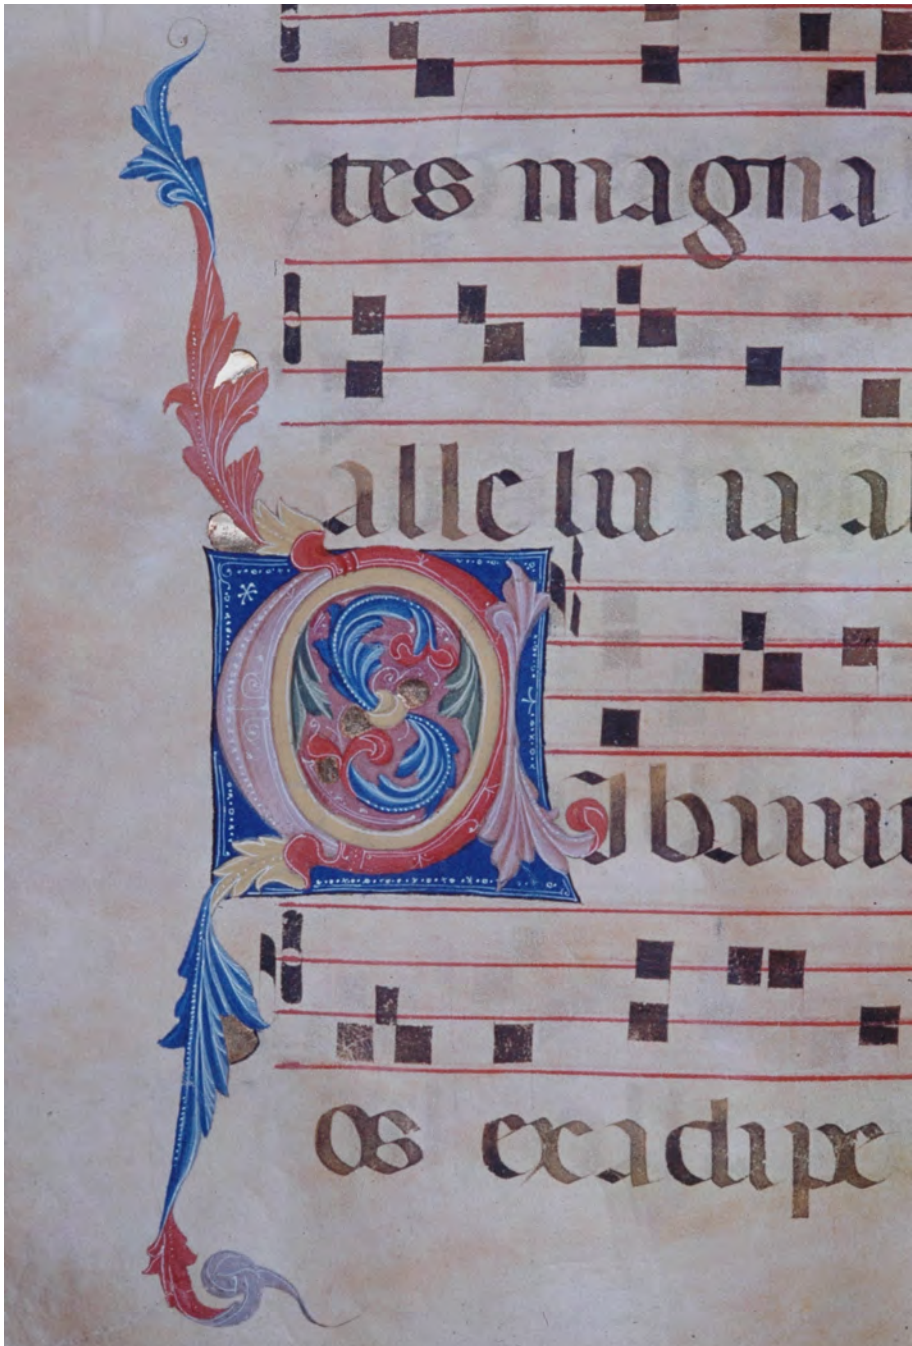 tes magna
alle lu ia al
CIbaui
os ex adipe